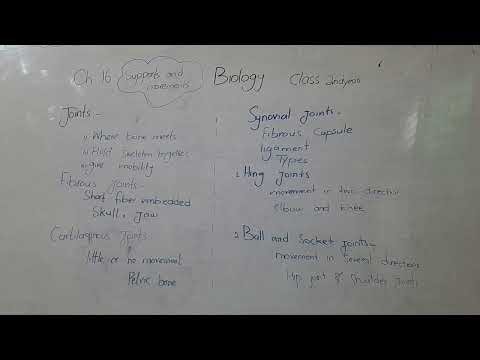 Ch 16 Supports and movements Biology Class 2ndyear
Joints:-
i) Where bone meets
ii) Hold Skeleton together
iii) give mobility
Fibrous Joints:-
Short fiber embeaded
Skull, Jaw
Cartilaginous Joints
little or no movement
Pelvic bone
Synovial Joints.
Fibrous Capsule
ligament
Types
1. Hing Joints
movement in two direction
Elbow and knee
2. Ball and Socket Joints-
movement in Several directions
Hip joint & Shoulder Joints